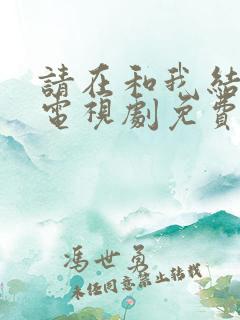 請在和我結
電視劇免費
馮世勇
未經同意禁止轉載